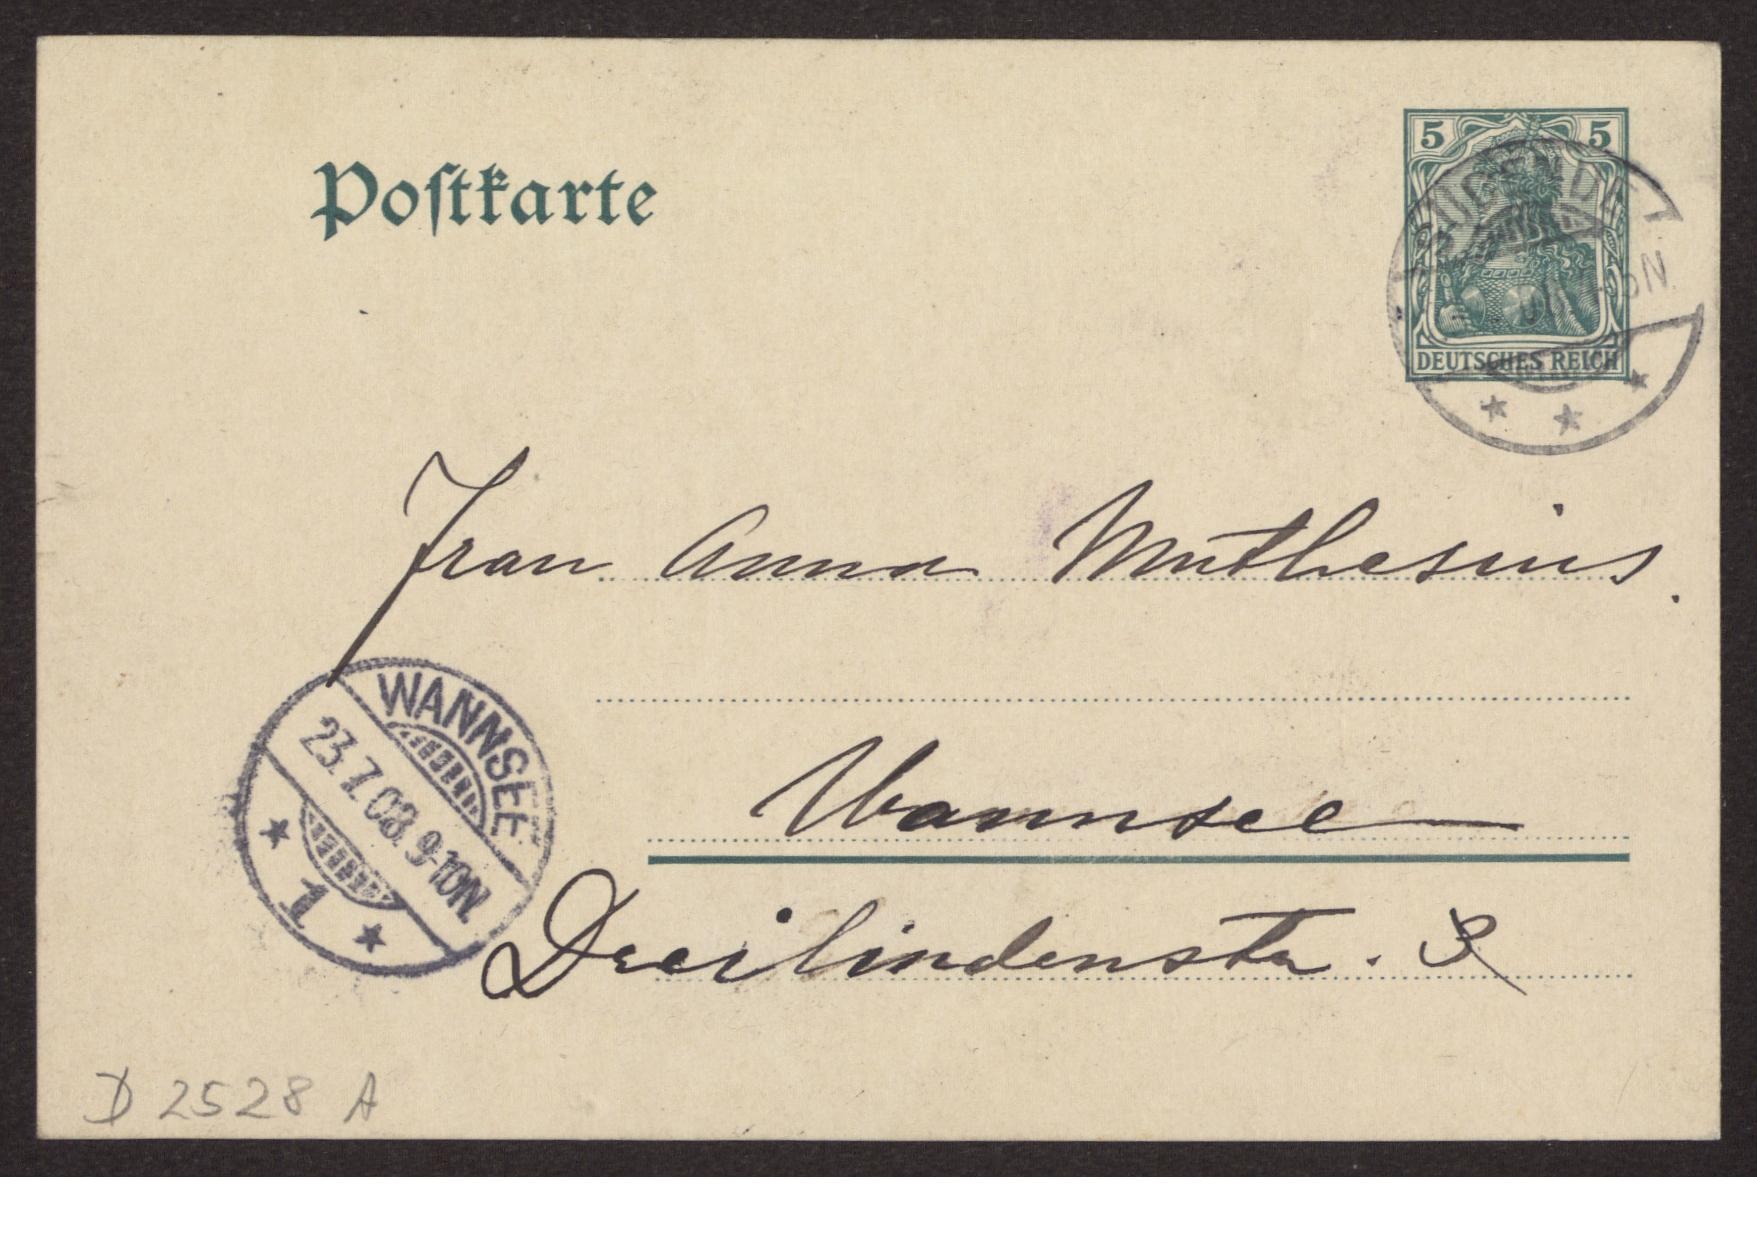 Postkarte
5 5
SÜDENDE
DEUTSCHES REICH
Frau Anna Muthesius.
WANNSEE
23.7.08.9-10N.
1
Wannsee
Dreilindenstr.
D 2528 A